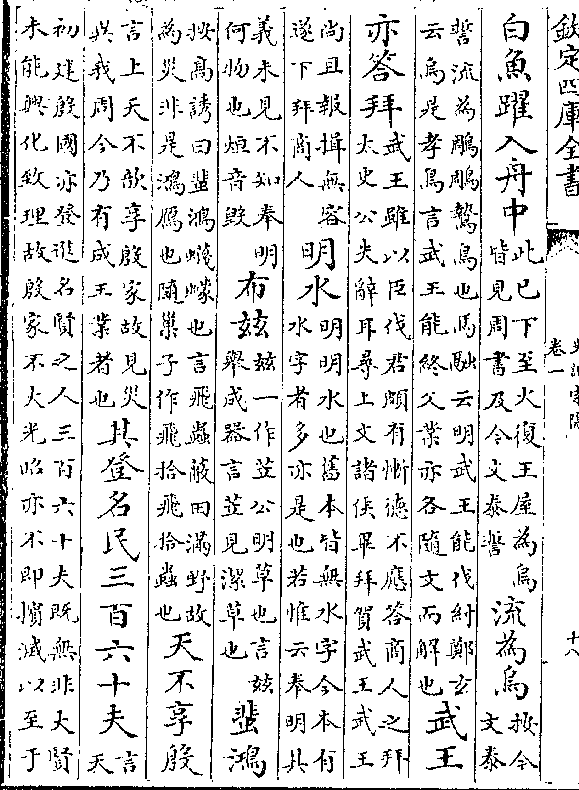 欽定四庫全書
史記索隱
卷一
十八
白魚躍入舟中
此已下至火復王屋為烏
皆見周書及今文泰誓
流為烏
按今
文泰
誓流為鵰鵰鷙鳥也馬融云明武王能伐紂鄭玄
云烏是孝鳥言武王能終父業亦各隨文而解也
武王
亦答拜
武王雖以臣伐君頗有慚德不應答商人之拜
太史公失辭耳尋上文諸侯畢拜賀武王武王
尚且報揖無容
遂下拜商人
明水
明明水也舊本皆無水字今本有
水字者多亦是也若惟云奉明其
義未見不知奉明
何物也烜音毀
布茲
茲一作苙公明草也言茲
舉成器言苙見潔草也
蜚鴻
按高誘曰蜚鴻蠛蠓也言飛蟲蔽田滿野故
為災非是鴻鴈也隨巢子作飛拾飛拾蟲也
天不享殷
言上天不歆享殷家故見災
與我周今乃有成王業者也
其登名民三百六十夫
言
天
初建殷國亦登進名賢之人三百六十夫既無非大賢
未能興化致理故殷家不大光昭亦不即擯滅以至于